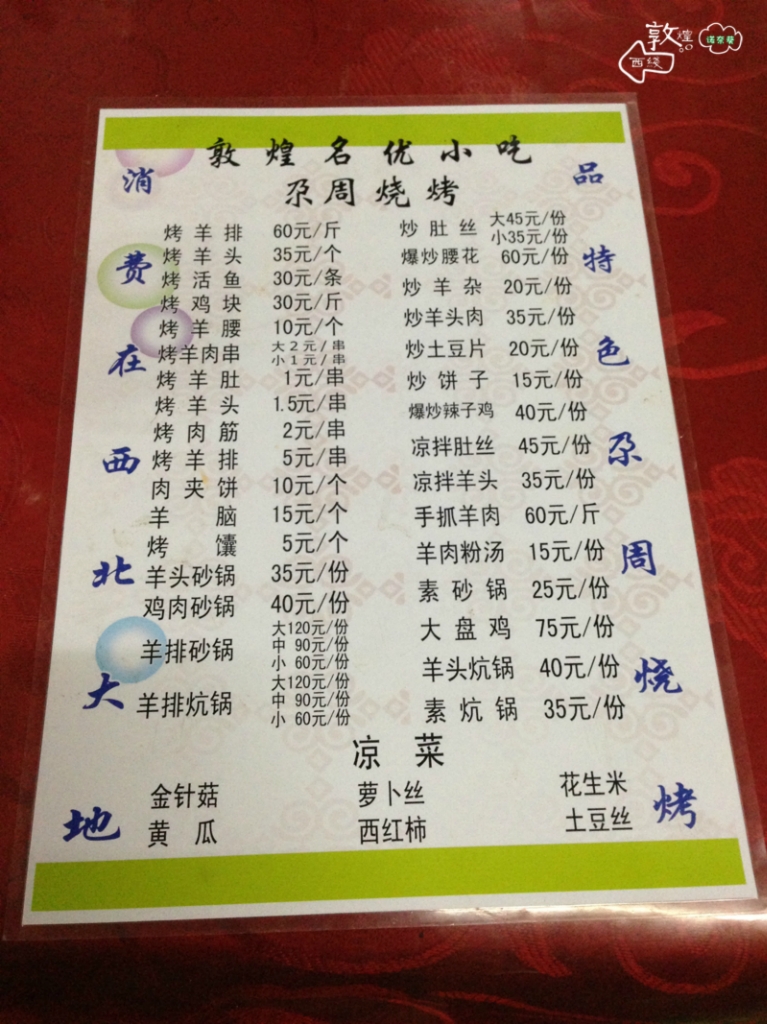 敦煌
西线
敦煌名优小吃
尕周烧烤
消费在西北大地
品特色尕周烧烤
烤羊排 60元/斤
烤羊头 35元/个
烤活鱼 30元/条
烤鸡块 30元/斤
烤羊腰 10元/个
烤羊肉串 大2元/串
小1元/串
烤羊肚 1元/串
烤羊头 1.5元/串
烤肉筋 2元/串
烤羊排 5元/串
肉夹饼 10元/个
羊脑 15元/个
烤馕 5元/个
羊头砂锅 35元/份
鸡肉砂锅 40元/份
羊排砂锅 大120元/份
中 90元/份
小 60元/份
羊排炕锅 大120元/份
中 90元/份
小 60元/份
炒肚丝 大45元/份
小35元/份
爆炒腰花 60元/份
炒羊杂 20元/份
炒羊头肉 35元/份
炒土豆片 20元/份
炒饼子 15元/份
爆炒辣子鸡 40元/份
凉拌肚丝 45元/份
凉拌羊头 35元/份
手抓羊肉 60元/斤
羊肉粉汤 15元/份
素砂锅 25元/份
大盘鸡 75元/份
羊头炕锅 40元/份
素炕锅 35元/份
凉菜
金针菇 萝卜丝 花生米
黄瓜 西红柿 土豆丝